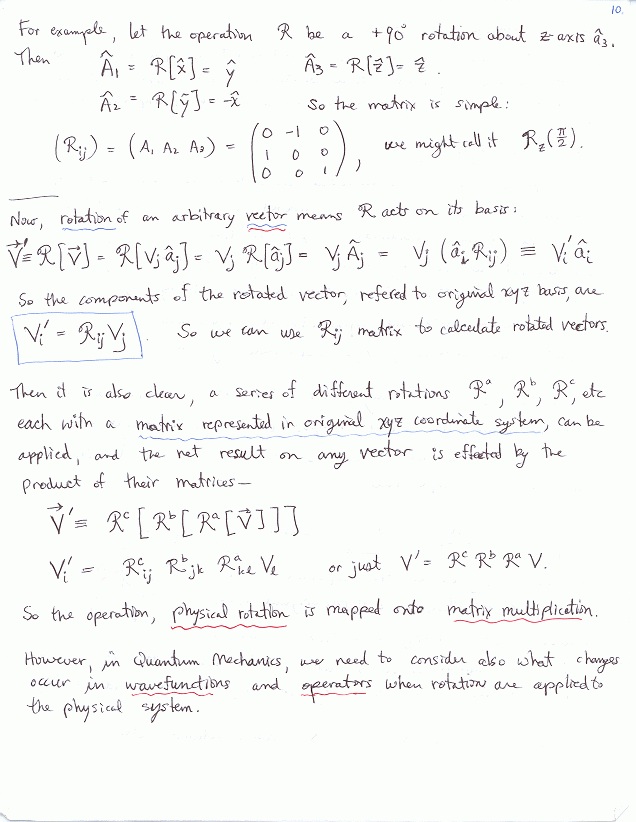 10.
For example, let the operation R be a +90° rotation about z-axis â₃.
Then Â₁ = R[x̂] = ŷ Â₃ = R[ẑ] = ẑ.
Â₂ = R[ŷ] = -x̂ So the matrix is simple:
(Rᵢⱼ) = (A₁ A₂ A₃) = (0 -1 0
1 0 0
0 0 1), we might call it R_z(π/2).
Now, rotation of an arbitrary vector means R acts on its basis:
V⃗' = R[V⃗] = R[Vⱼ âⱼ] = Vⱼ R[âⱼ] = Vⱼ Âⱼ = Vⱼ (âᵢ Rᵢⱼ) ≡ Vᵢ' âᵢ
So the components of the rotated vector, refered to original xyz basis, are
Vᵢ' = Rᵢⱼ Vⱼ. So we can use Rᵢⱼ matrix to calculate rotated vectors.
Then it is also clear, a series of different rotations Rᵃ, Rᵇ, Rᶜ, etc
each with a matrix represented in original xyz coordinate system, can be
applied, and the net result on any vector is effected by the
product of their matrices—
V⃗' ≡ Rᶜ[Rᵇ[Rᵃ[V⃗]]]
Vᵢ' = Rᶜᵢⱼ Rᵇⱼₖ Rᵃₖℓ Vℓ or just V' = Rᶜ Rᵇ Rᵃ V.
So the operation, physical rotation is mapped onto matrix multiplication.
However, in Quantum Mechanics, we need to consider also what changes
occur in wavefunctions and operators when rotation are applied to
the physical system.